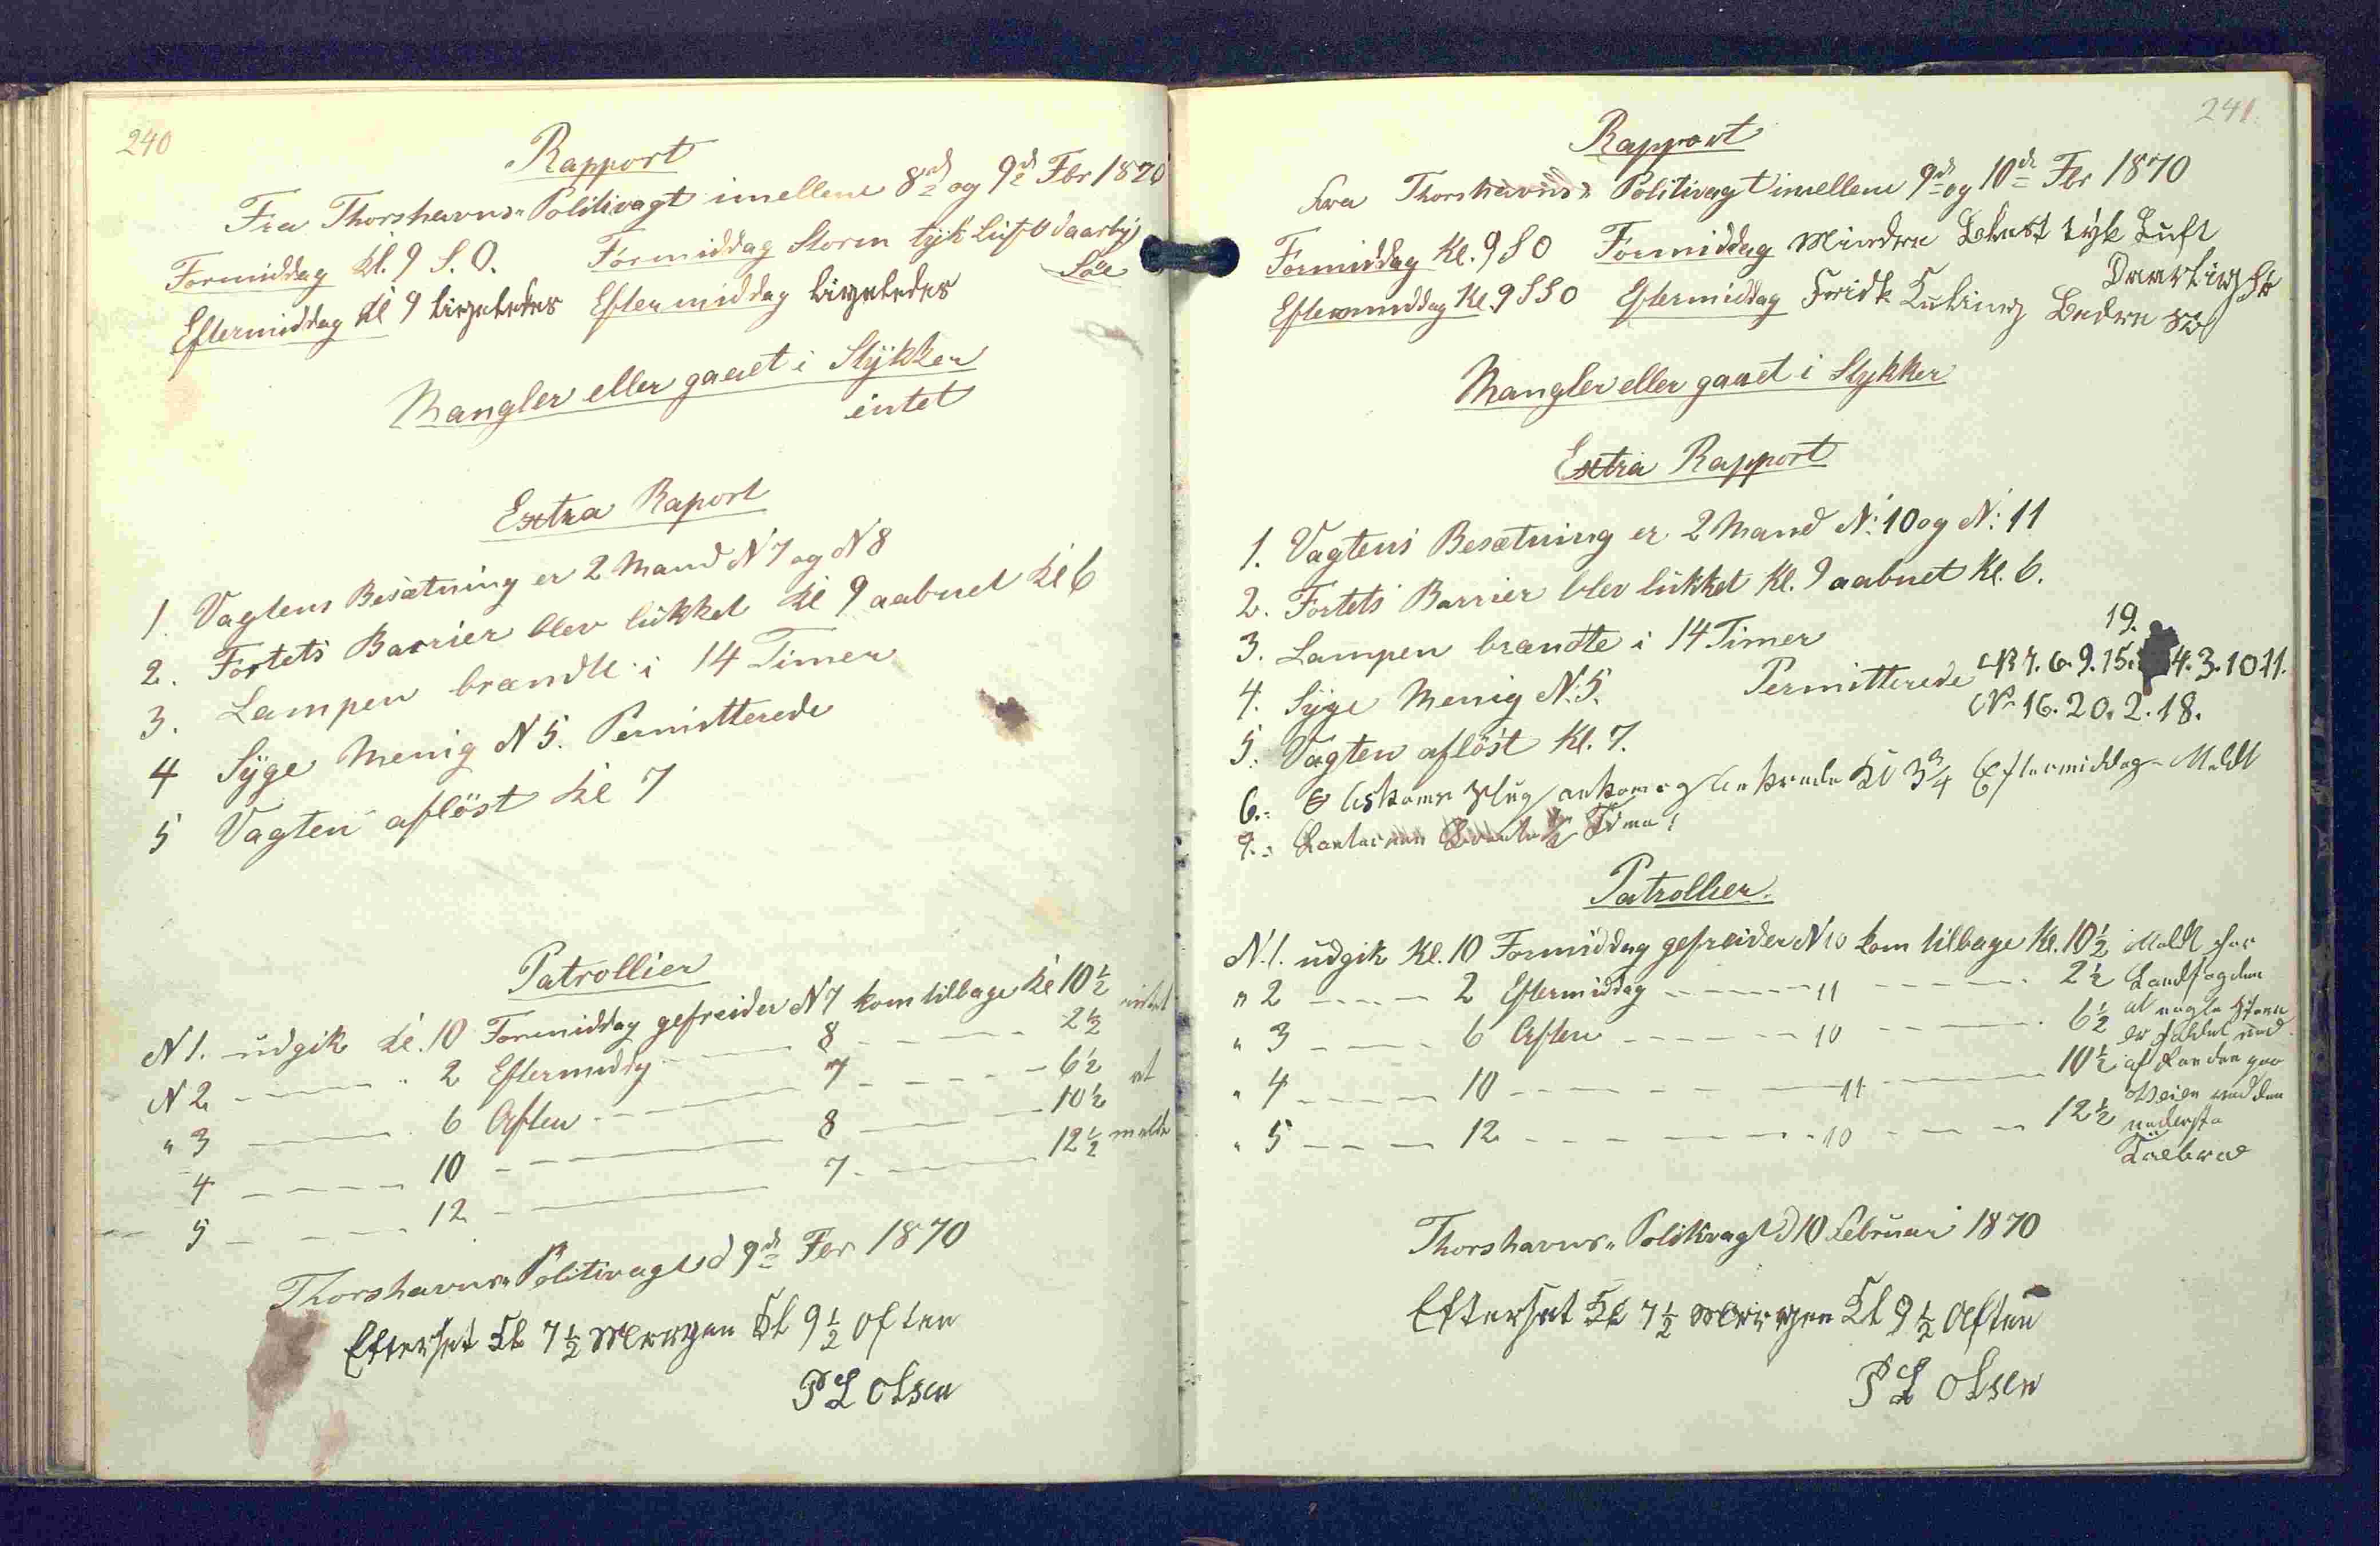 240
Rapport
Fra Thorshavns Politivagt imellem 8de og 9de Fbr 1870
Formiddag Kl. 9 S.O. Formiddag Storm tyk Luft daarlig
Söe
Eftermiddag Kl 9 ligeledes Eftermiddag ligeledes
Mangler eller gaaet i Stykker
intet
Extra Raport
1. Vagtens Besætning er 2 Mand N 7 og N 8
2. Fortets Barrier blev lukket Kl 9 aabnet Kl 6
3. Lampen brændte i 14 Timer
4 Syge Menig N 5. Permitterede
5 Vagten aflöst Kl 7
Patrollier
N 1. udgik Kl. 10 Formiddag gefreider N 7 kom tilbage Kl 10½ intet
N 2 — 2 Eftermiddg — 8 — 2½
" 3 — 6 Aften — 7 — 6½ at
4 — 10 — 8 — 10½
5 — 12 — 7 — 12½ melde
Thorshavns Politivagt d 9de Fbr 1870
Efterset Kl 7½ Morgen Kl 9½ Aften
P L Olsen
241.
Rapport
Fra Thorshavns Politivagt imellem 9de og 10de Fbr 1870
Formiddag Kl. 9 S O Formiddag Mindre Blæst tyk Luft
Daarlig Sö
Eftermiddag Kl. 9 S S O Eftermiddag Frisk Kuling Bedre Sö
Mangler eller gaaet i Stykker
Extra Rapport
1. Vagtens Besætning er 2 Mand N: 10 og N: 11
2. Fortets Barrier blev lukket Kl. 9 aabnet Kl. 6.
3. Lampen brændte i 14 Timer
19.
4. Syge Menig N: 5. Permitterede N 7. 6. 9. 15. 4. 3. 10 11.
N 16. 20. 2. 18.
5. Vagten aflöst Kl. 7.
6. Kl 3¾ Eftermiddag Meldt
7. Lanternen ½ Time
Patrollier.
N. 1. udgik Kl. 10 Formiddag gefreider N 10 kom tilbage Kl. 10½ Meldt for
" 2 — 2 Eftermiddag — 11 — 2½ Landfogden
" 3 — 6 Aften — 10 — 6½ at nogle Steen
er faldet ned
" 4 — 10 — 11 — 10½ af paa
Veien ved den
" 5 — 12 — 10 — 12½ nederste
Thorshavns Politivagt d 10 Februar 1870
Efterset Kl 7½ Morgen Kl 9½ Aften
P L Olsen